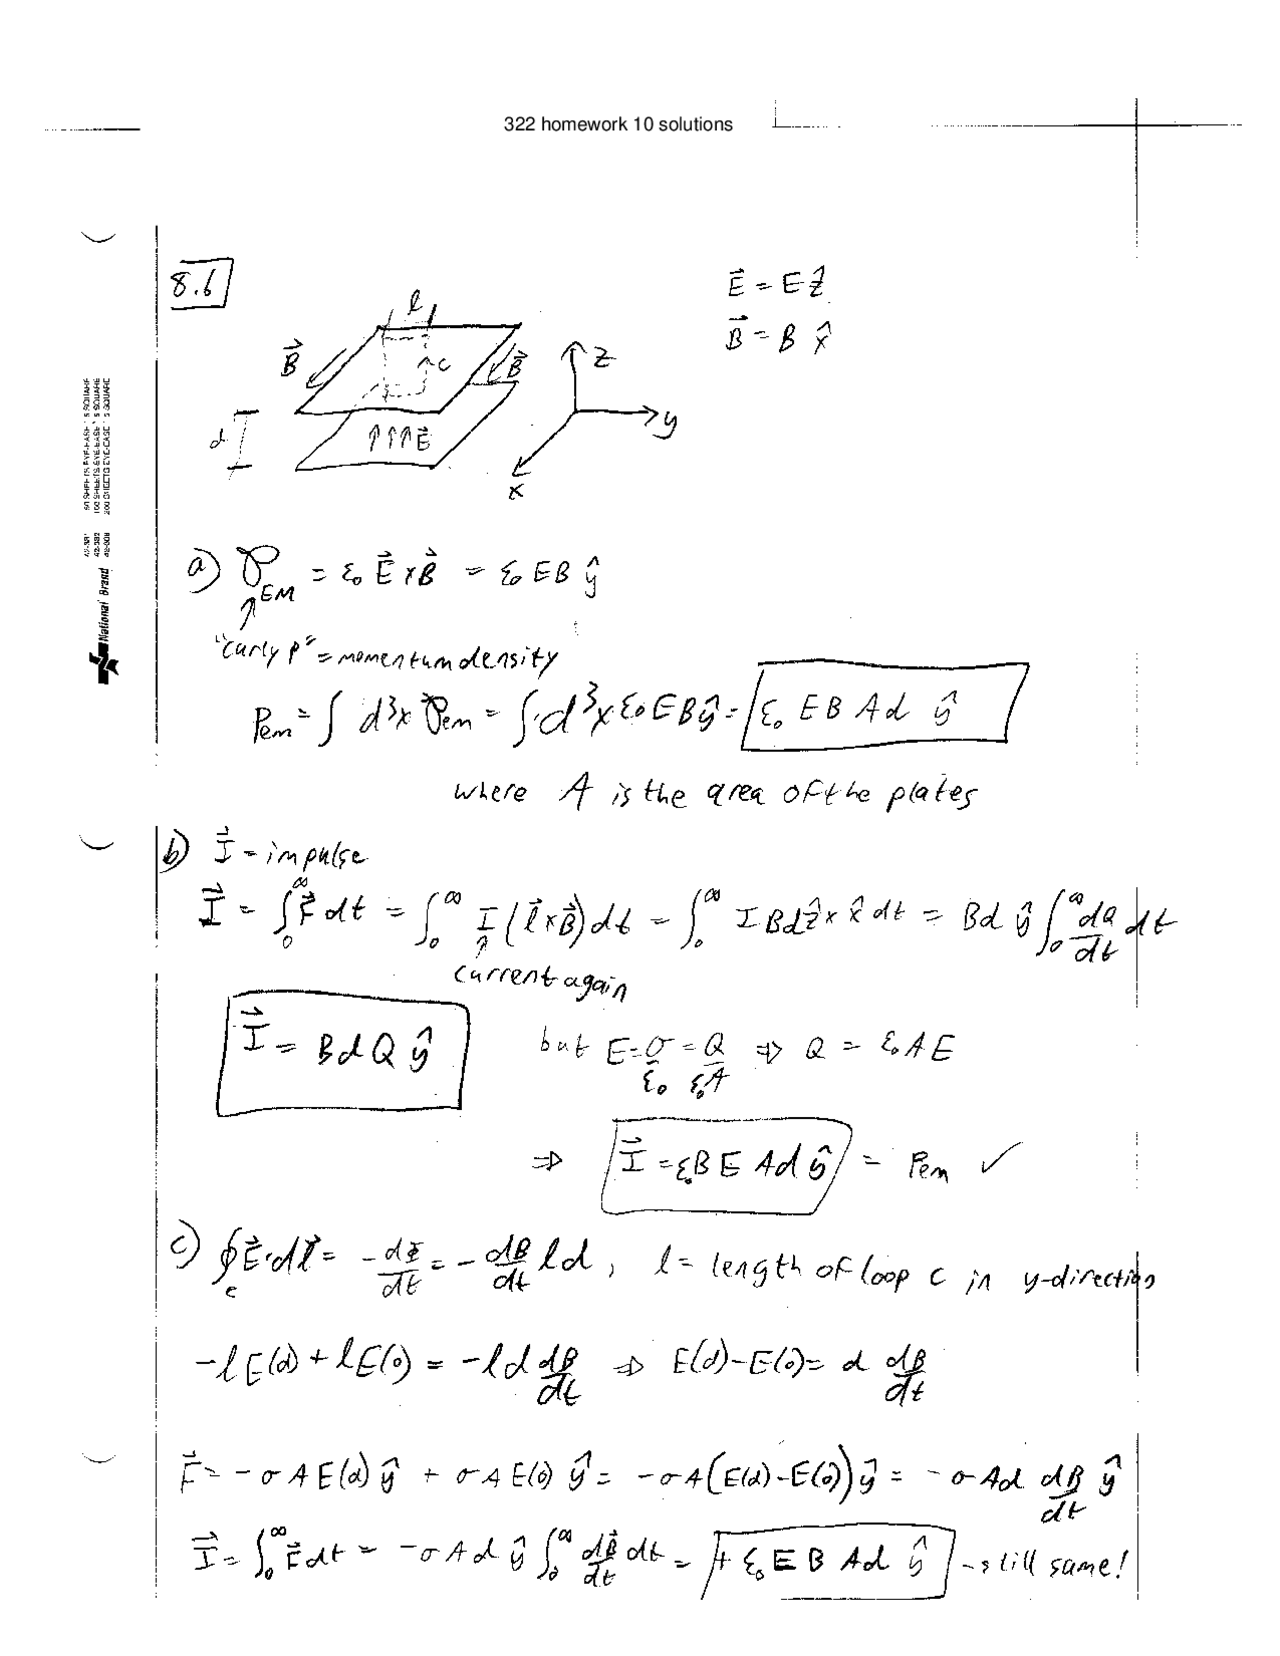 322 homework 10 solutions
8.6
E⃗ = E ẑ
B⃗ = B x̂
l
B⃗
c
B⃗
z
d
↑↑↑E⃗
y
x
a) 𝒫_EM = ε₀ E⃗ × B⃗ = ε₀ EB ŷ
"curly p" = momentum density
P_em = ∫ d³x 𝒫_em = ∫ d³x ε₀ EB ŷ = ε₀ EB Ad ŷ
where A is the area of the plates
b) I⃗ = impulse
I⃗ = ∫₀^∞ F⃗ dt = ∫₀^∞ I (l⃗ × B⃗) dt = ∫₀^∞ I B d ẑ × x̂ dt = Bd ŷ ∫₀^∞ dQ/dt dt
current again
I⃗ = B d Q ŷ but E = σ/ε₀ = Q/ε₀A ⇒ Q = ε₀ A E
⇒ I⃗ = ε₀ B E Ad ŷ = P_em ✓
c) ∮_c E⃗·dl⃗ = - dΦ/dt = - dB/dt l d, l = length of loop c in y-direction
-l E(d) + l E(0) = -l d dB/dt ⇒ E(d) - E(0) = d dB/dt
F⃗ = -σ A E(d) ŷ + σ A E(0) ŷ = -σ A (E(d) - E(0)) ŷ = -σ A d dB/dt ŷ
I⃗ = ∫₀^∞ F⃗ dt = -σ A d ŷ ∫₀^∞ dB⃗/dt dt = + ε₀ E B Ad ŷ - still same!
National Brand